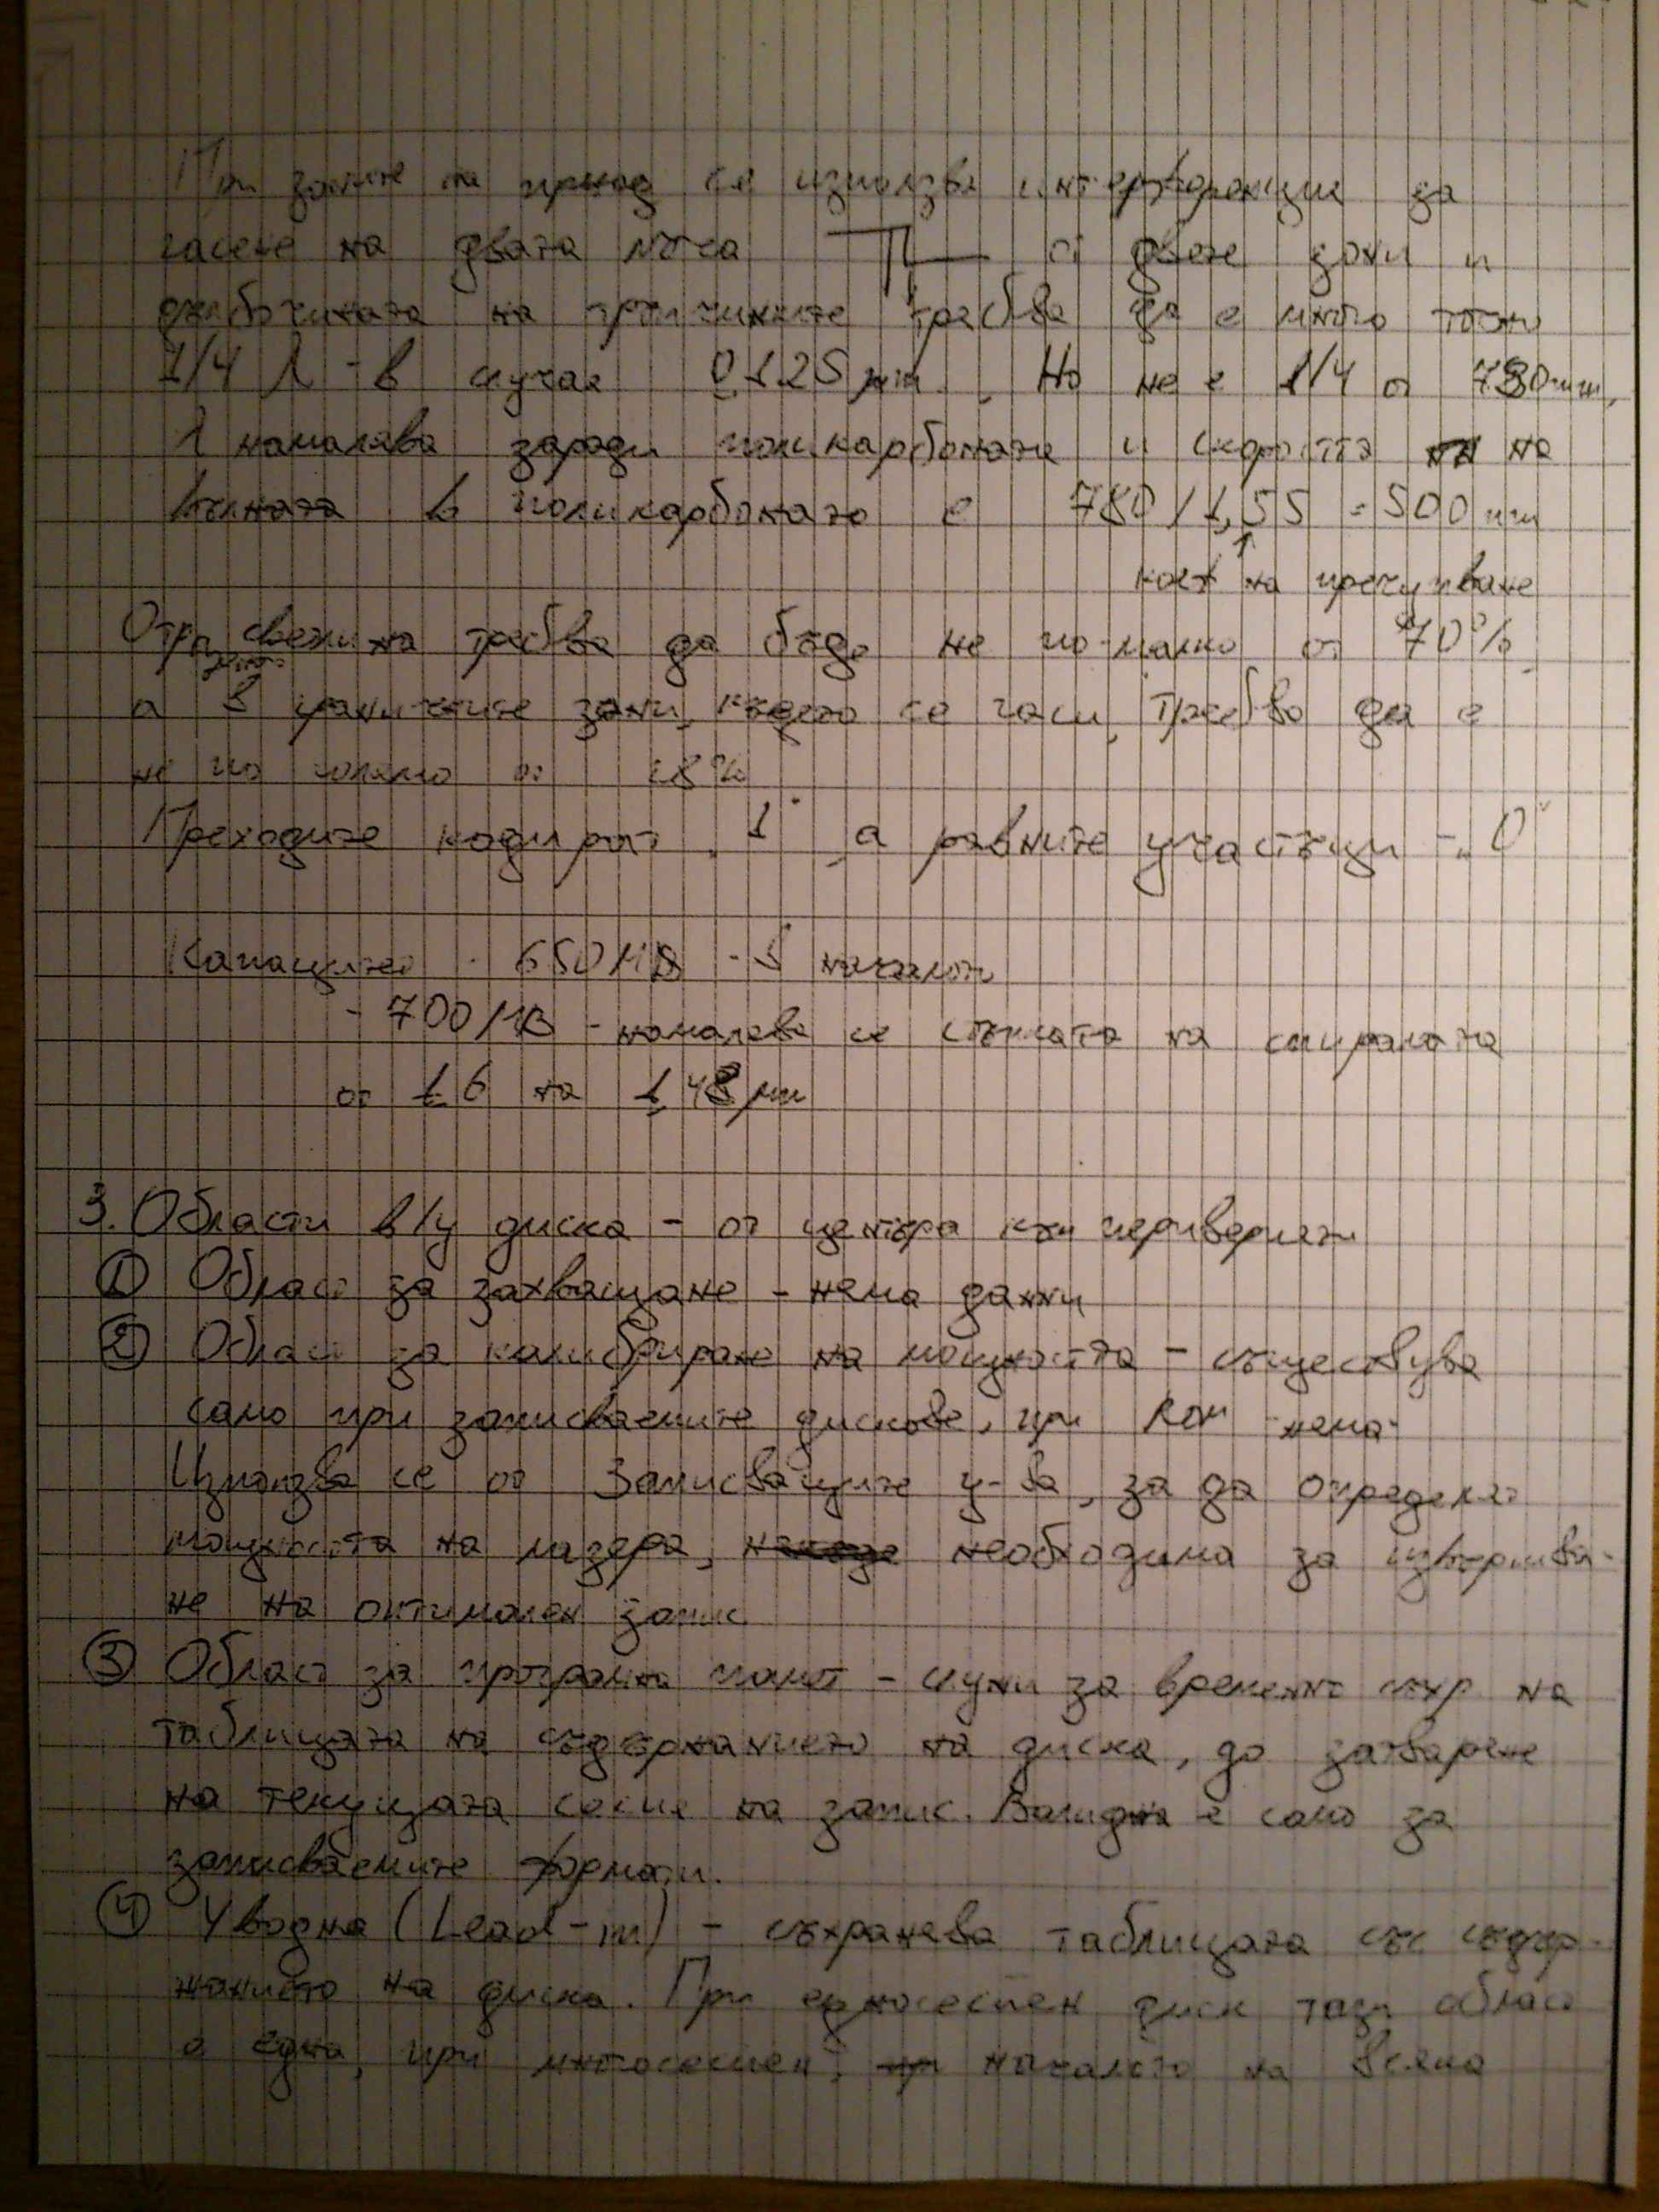 При зоните на преход се използва интерференция за
гасене на двата лъча от двете зони и
дълбочината на трапчините трябва да е много точно
1/4 λ - в случая 0,125 μm. Но не е 1/4 от 780nm,
λ намалява заради поликарбоната и скоростта на
вълната в поликарбоната е 780/1,55 = 500 nm
коеф на пречупване
трябва да бъде не по-малко от 70%
а в граничните зони, където се гаси, трябва да е
не по голямо от 28%
Преходите кодират „1“, а равните участъци - „0“
Капацитет - 650MB - в началото
- 700MB - намалява се стъпката на спиралата
от 1,6 на 1,48 μm
3. Области в/у диска - от центъра към периферията
① Област за захващане - няма данни
② Област за калибриране на мощността - съществува
само при записваемите дискове, при ROM няма.
Използва се от Записващите у-ва, за да определят
мощността на лазера, необходима за извършва-
не на оптимален запис
③ Област за програмна памет - служи за временно съхр на
таблицата на съдържанието на диска, до затваряне
на текущата сесия на запис. Валидна е само за
записваемите формати.
④ Уводна (Lead-in) - съхранява таблицата със съдър-
жанието на диска. При едносесиен диск тази област
е една, при многосесиен, началото на всяка